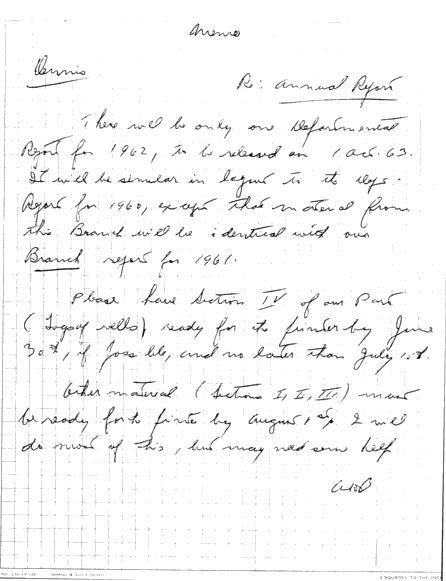 Memo
Dennis
Re: Annual Report
There will be only one Departmental
Report for 1962, to be released on 1 Oct. 63.
It will be similar in layout to the Dep.
Report for 1960, except that material from
this Branch will be identical with our
Branch report for 1961.
Please have Section IV of our Part
(Logs of wells), ready for the printer by June
30th, if possible, and no later than July 10th.
Other material (Sections I, II, III) must
be ready for the printer by August 1st. I will
do most of this, but may need some help